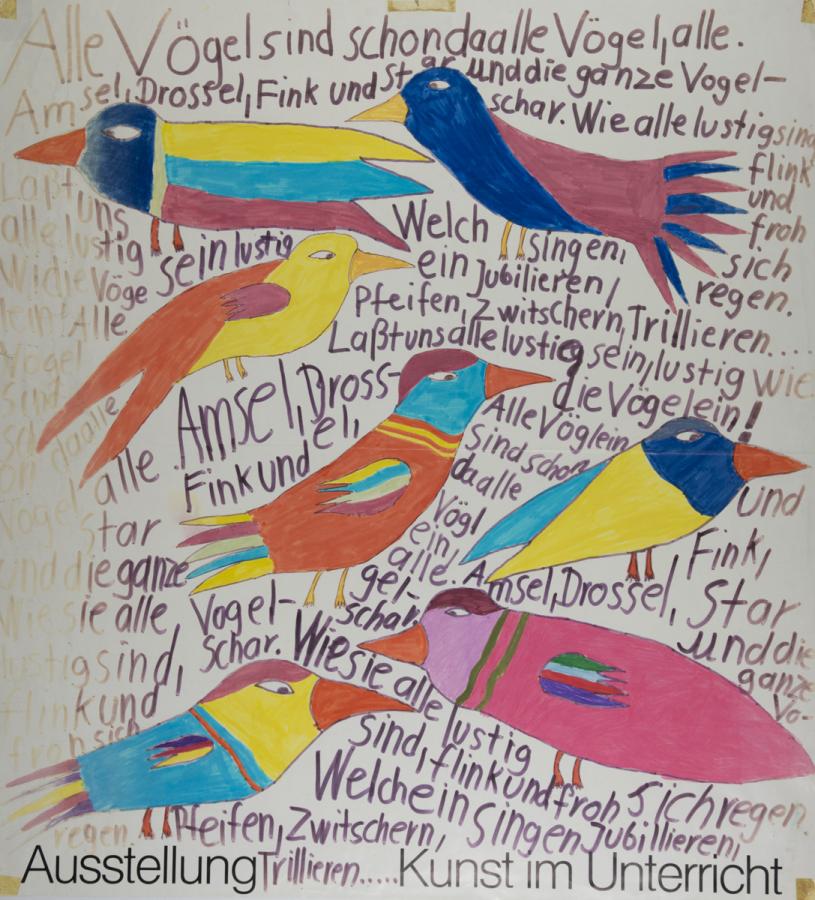 Alle Vögel sind schon da alle Vögel, alle.
Amsel, Drossel, Fink und Star und die ganze Vogel-
schar. Wie alle lustig sind
flink
und
froh
sich
regen.
Welch singen,
ein Jubilieren,
Pfeifen, Zwitschern, Trillieren....
Laßt uns alle lustig sein, lustig wie
die Vögelein!
Laßt uns
alle lustig sein lustig
Wi die Vöge
lein! Alle
Vögel
sind
sch
on da alle
alle
Vogel
Amsel, Dross-
el,
Fink und
Star
und die ganze
Vogel-
schar.
Wie sie alle,
lustig sind,
flink und
froh sich
regen
Alle Vöglein
sind schon
da alle
Vögl
ein
alle.
Amsel, Drossel,
Fink,
und
Star
und die
ganze
Vo-
gel-
schar.
Wie sie alle lustig
sind, flink und froh sich regen.
Welch ein singen Jubillieren,
Pfeifen, Zwitschern,
Trillieren.....
Ausstellung Kunst im Unterricht